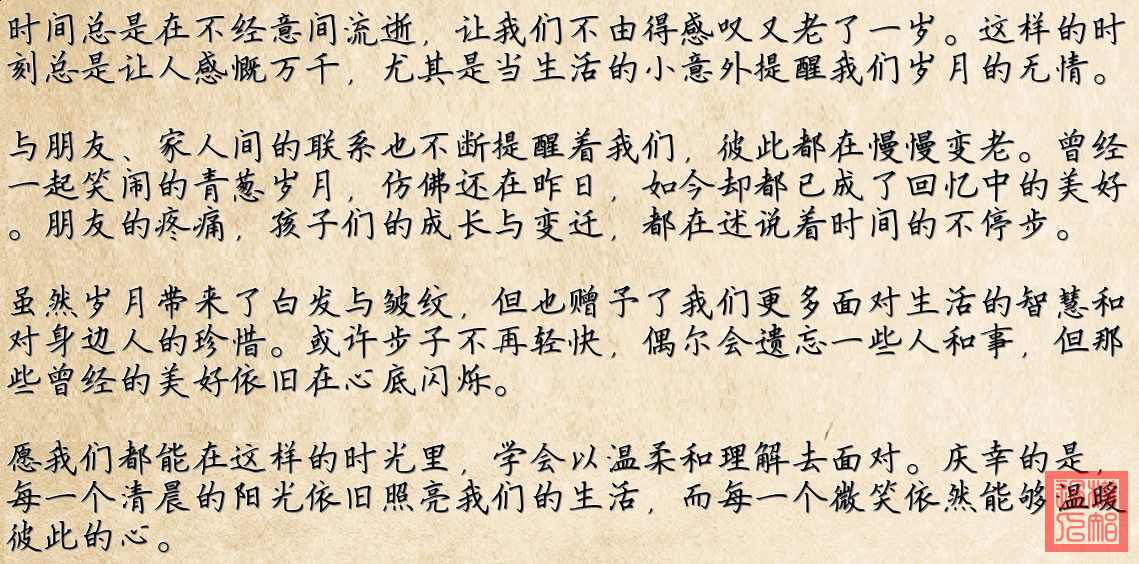 时间总是在不经意间流逝，让我们不由得感叹又老了一岁。这样的时
刻总是让人感慨万千，尤其是当生活的小意外提醒我们岁月的无情。
与朋友、家人间的联系也不断提醒着我们，彼此都在慢慢变老。曾经
一起笑闹的青葱岁月，仿佛还在昨日，如今却都已成了回忆中的美好
。朋友的疼痛，孩子们的成长与变迁，都在述说着时间的不停步。
虽然岁月带来了白发与皱纹，但也赠予了我们更多面对生活的智慧和
对身边人的珍惜。或许步子不再轻快，偶尔会遗忘一些人和事，但那
些曾经的美好依旧在心底闪烁。
愿我们都能在这样的时光里，学会以温柔和理解去面对。庆幸的是，
每一个清晨的阳光依旧照亮我们的生活，而每一个微笑依然能够温暖
彼此的心。